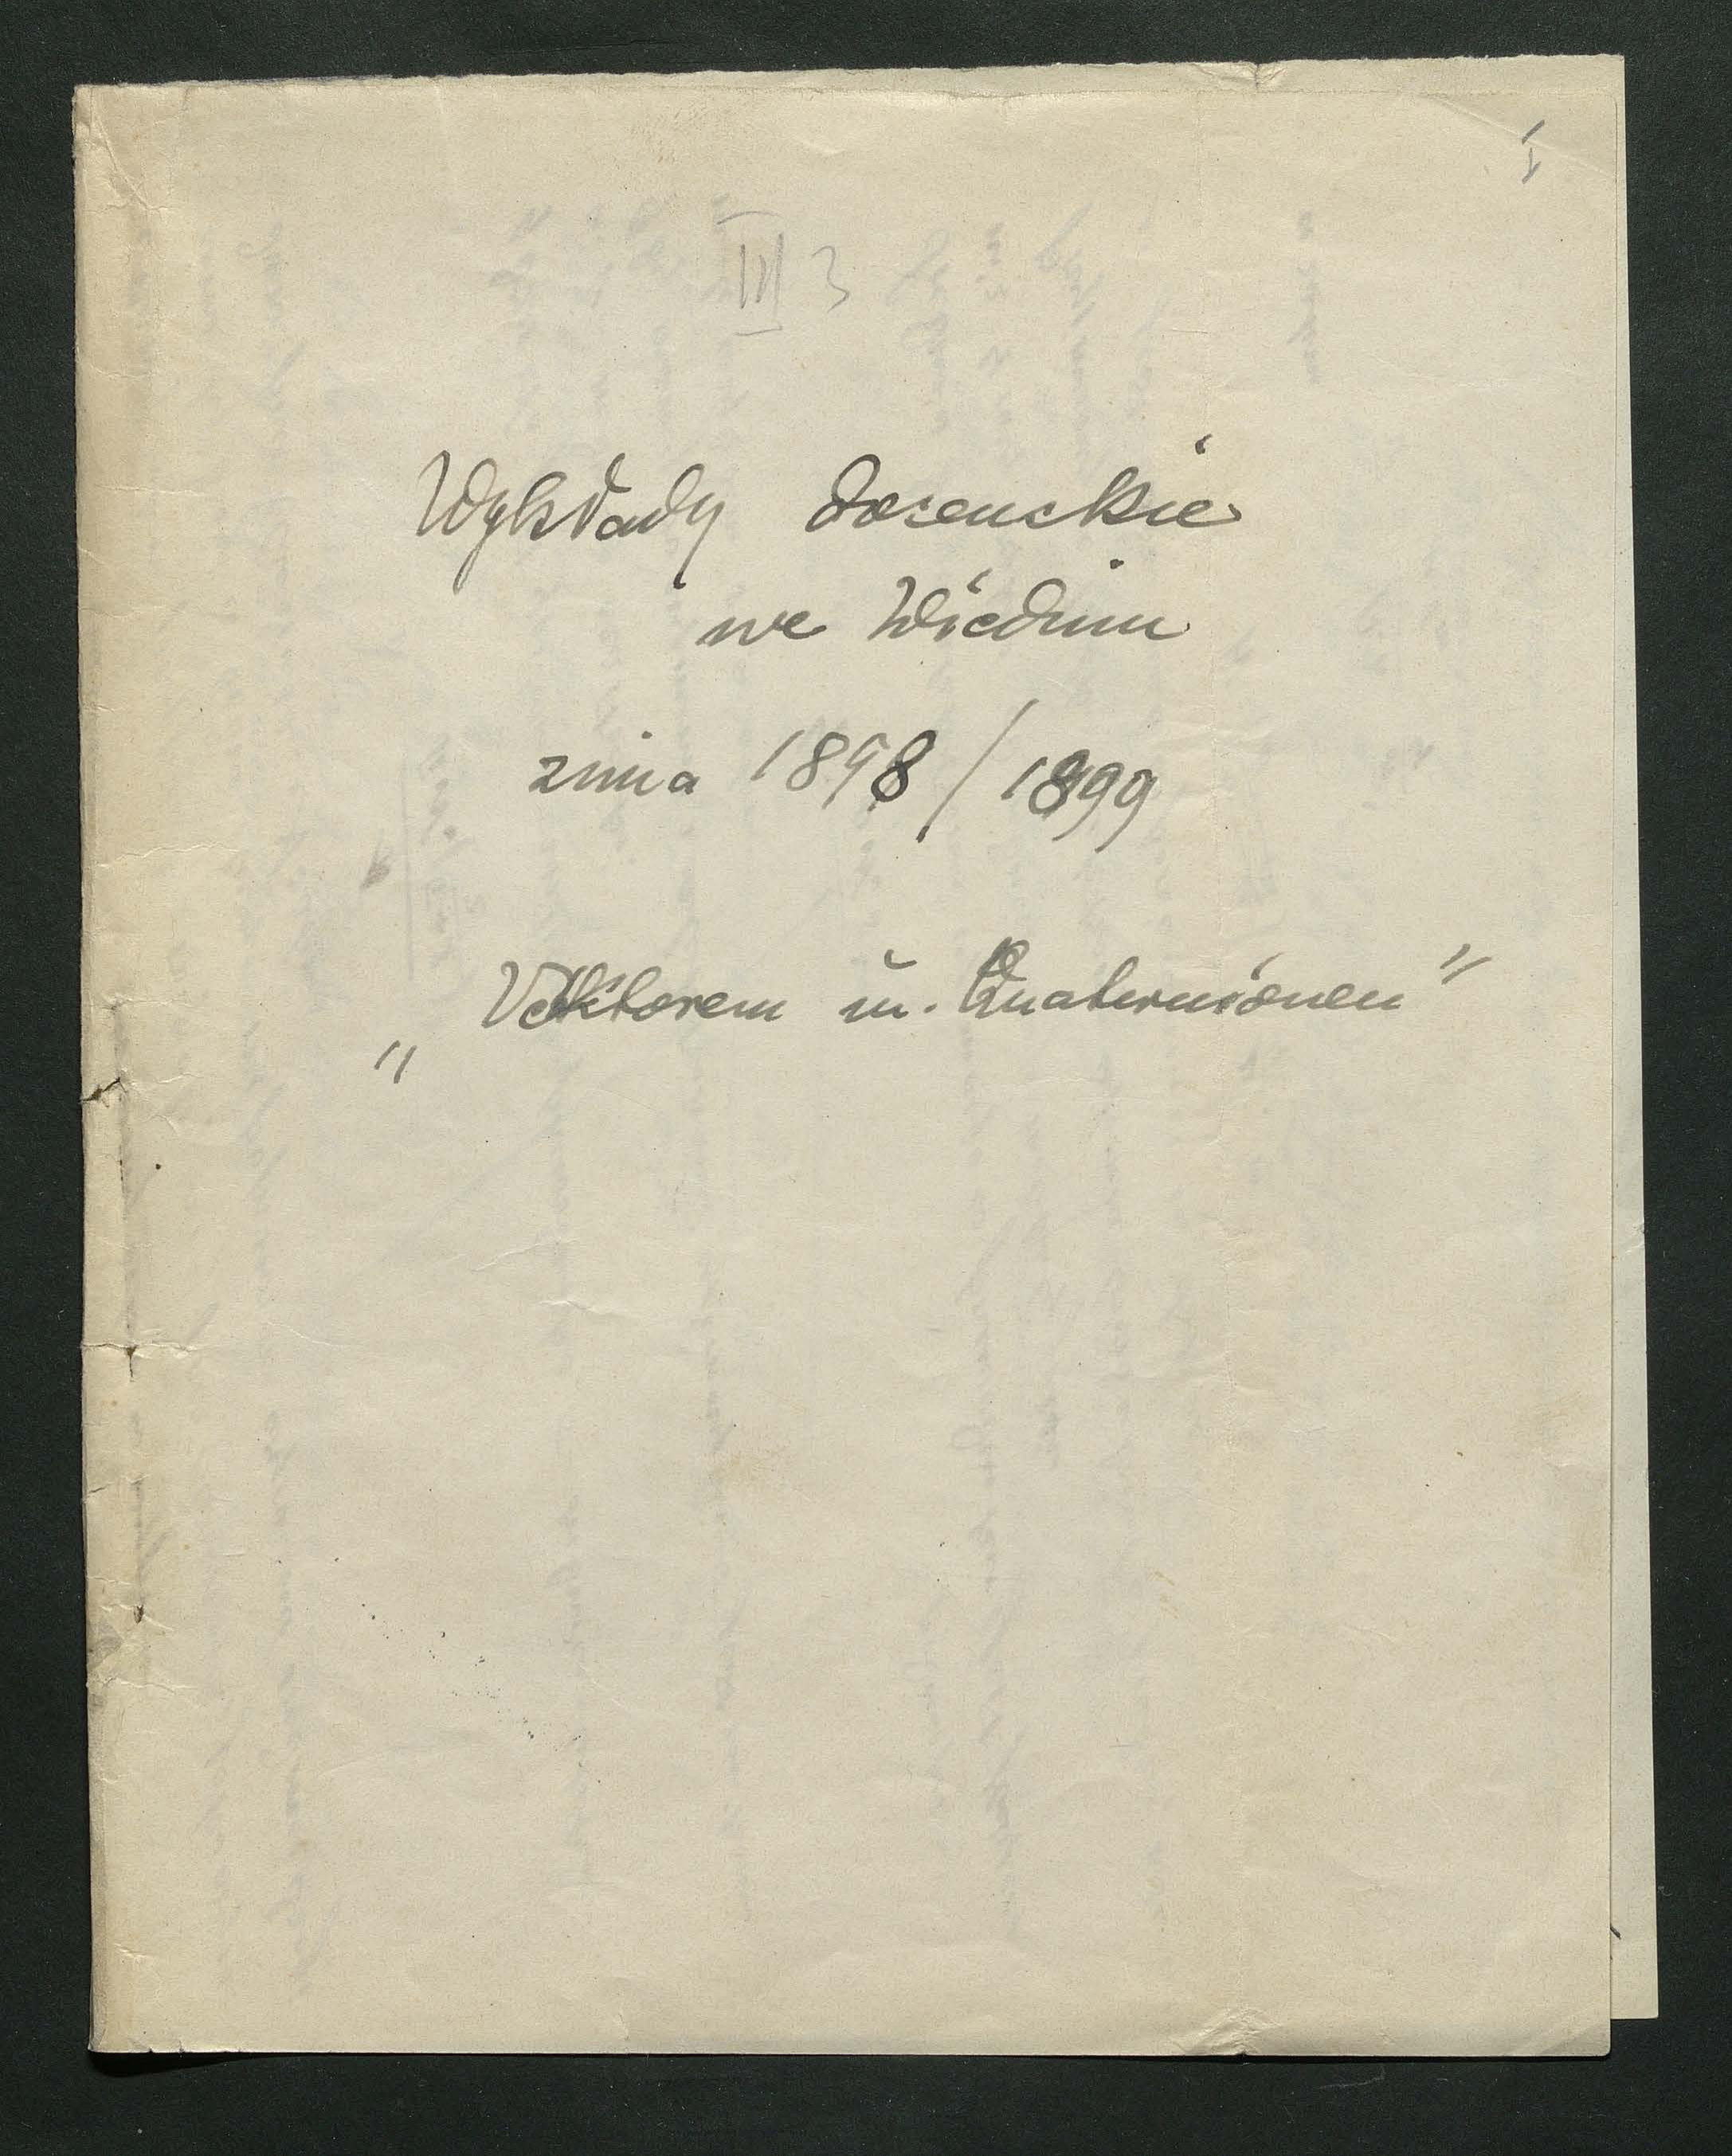 I
III 3
Wykłady docenckie
we Wiedniu
zima 1898/1899
„Vektoren u. Quaternionen"